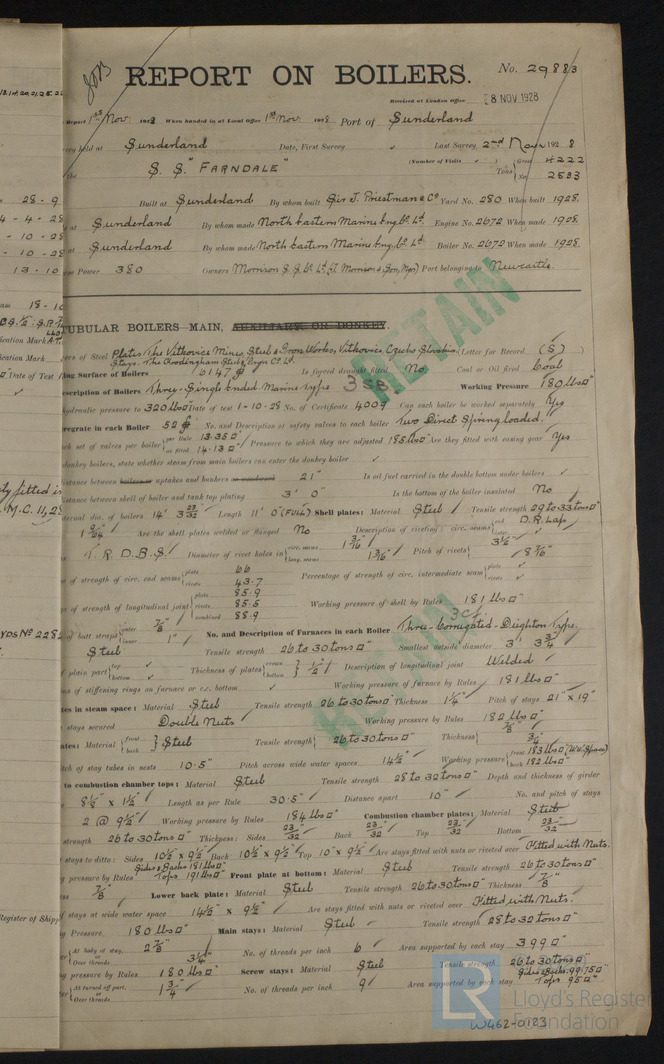 REPORT ON BOILERS.
No. 29883
Received at London Office 8 NOV. 1928
Report 1st Nov. 1928 When handed in at Local Office 1st Nov. 1928 Port of Sunderland
held at Sunderland Date, First Survey Last Survey 2nd Nov. 1928
(Number of Visits ) Tons Gross 4222
S. S. "FARNDALE" Net 2533
Built at Sunderland By whom built Sir J. Priestman & Co Yard No. 280 When built 1928
at Sunderland By whom made North Eastern Marine Eng. Co. Ld. Engine No. 2672 When made 1928
at Sunderland By whom made North Eastern Marine Eng. Co. Ld. Boiler No. 2672 When made 1928
Power 380 Owners Morrison S. S. Co. Ld. Port belonging to Newcastle
TUBULAR BOILERS—MAIN, AUXILIARY, OR DONKEY.
of Steel Plates The Vitkovice Mines Steel & Iron Works, Vitkovice, Czecho Slovakia (Letter for Record (S)
Stays. The Frodingham Steel & Iron Co. Ld.
Surface of Boilers 6147 Is forced draught fitted No Coal or Oil fired Coal
Description of Boilers Three Single Ended Marine Type 3SB Working Pressure 180 lbs
hydraulic pressure to 320 lbs Date of test 1-10-28 No. of Certificate 4009 Can each boiler be worked separately Yes
in each Boiler 52 No. and Description of safety valves to each boiler Two Direct Spring loaded.
set of valves per boiler per Rule 13.35 as fitted 14.13 Pressure to which they are adjusted 185 lbs Are they fitted with easing gear Yes
donkey boilers, state whether steam from main boilers can enter the donkey boiler
distance between boilers or uptakes and bunkers or woodwork 21" Is oil fuel carried in the double bottom under boilers
distance between shell of boiler and tank top plating 3' 0" Is the bottom of the boiler insulated No
dia. of boilers 14' 3 23/32 Length 11' 0" (FULL) Shell plates: Material Steel Tensile strength 29 to 33 tons
1 9/64" Are the shell plates welded or flanged No Description of riveting: circ. seams end D.R. Lap
T. R. D. B. S. Diameter of rivet holes in circ. seams 1 3/16 long. seams 1 3/16 Pitch of rivets 3 1/2" 8 3/16"
of strength of circ. end seams plate 66 rivets 43.7 Percentage of strength of circ. intermediate seam plate rivets
of strength of longitudinal joint plate 85.9 rivets 85.5 combined 88.9 Working pressure of shell by Rules 181 lbs
of butt straps outer 7/8" inner 1" No. and Description of Furnaces in each Boiler 3cf. Three Corrugated Deighton Type.
Steel Tensile strength 26 to 30 tons Smallest outside diameter 3' 3 3/4"
of plain part top bottom Thickness of plates crown bottom 1/2" Description of longitudinal joint Welded
of stiffening rings on furnace or c.c. bottom Working pressure of furnace by Rules 181 lbs
in steam space: Material Steel Tensile strength 26 to 30 tons Thickness 1 1/4" Pitch of stays 21" x 19"
stays secured Double Nuts Working pressure by Rules 182 lbs
Material front back Steel Tensile strength 26 to 30 tons Thickness 7/8" 3/4"
of stay tubes in nests 10.5" Pitch across wide water spaces 14 1/2" Working pressure front 183 lbs (W.W. Space) back 182 lbs
to combustion chamber tops: Material Steel Tensile strength 28 to 32 tons Depth and thickness of girder
8 1/2" x 1 1/2" Length as per Rule 30.5" Distance apart 10" No. and pitch of stays
2 @ 9 1/2" Working pressure by Rules 184 lbs Combustion chamber plates: Material Steel
strength 26 to 30 tons Thickness: Sides 23/32 Back 23/32 Top 23/32 Bottom 23/32
stays to ditto: Sides 10 1/2 x 9 1/2 Back 10 1/2 x 9 1/2 Top 10" x 9 1/2 Are stays fitted with nuts or riveted over Fitted with Nuts.
pressure by Rules Sides & Backs 181 lbs Tops 191 lbs Front plate at bottom: Material Steel Tensile strength 26 to 30 tons
7/8" Lower back plate: Material Steel Tensile strength 26 to 30 tons Thickness 7/8"
stays at wide water space 14 1/2" x 9 1/2" Are stays fitted with nuts or riveted over Fitted with Nuts.
Pressure 180 lbs Main stays: Material Steel Tensile strength 28 to 32 tons
At body of stay, Over threads 2 7/8" 3 1/4" No. of threads per inch 6 Area supported by each stay 399
pressure by Rules 180 lbs Screw stays: Material Steel Tensile strength 26 to 30 tons
At turned off part, Over threads 1 3/4" No. of threads per inch 9 Area supported by each stay Sides & Backs 99.75 Tops 95
RETAIN
RETAIN
LR Lloyd's Register Foundation
W462-0123